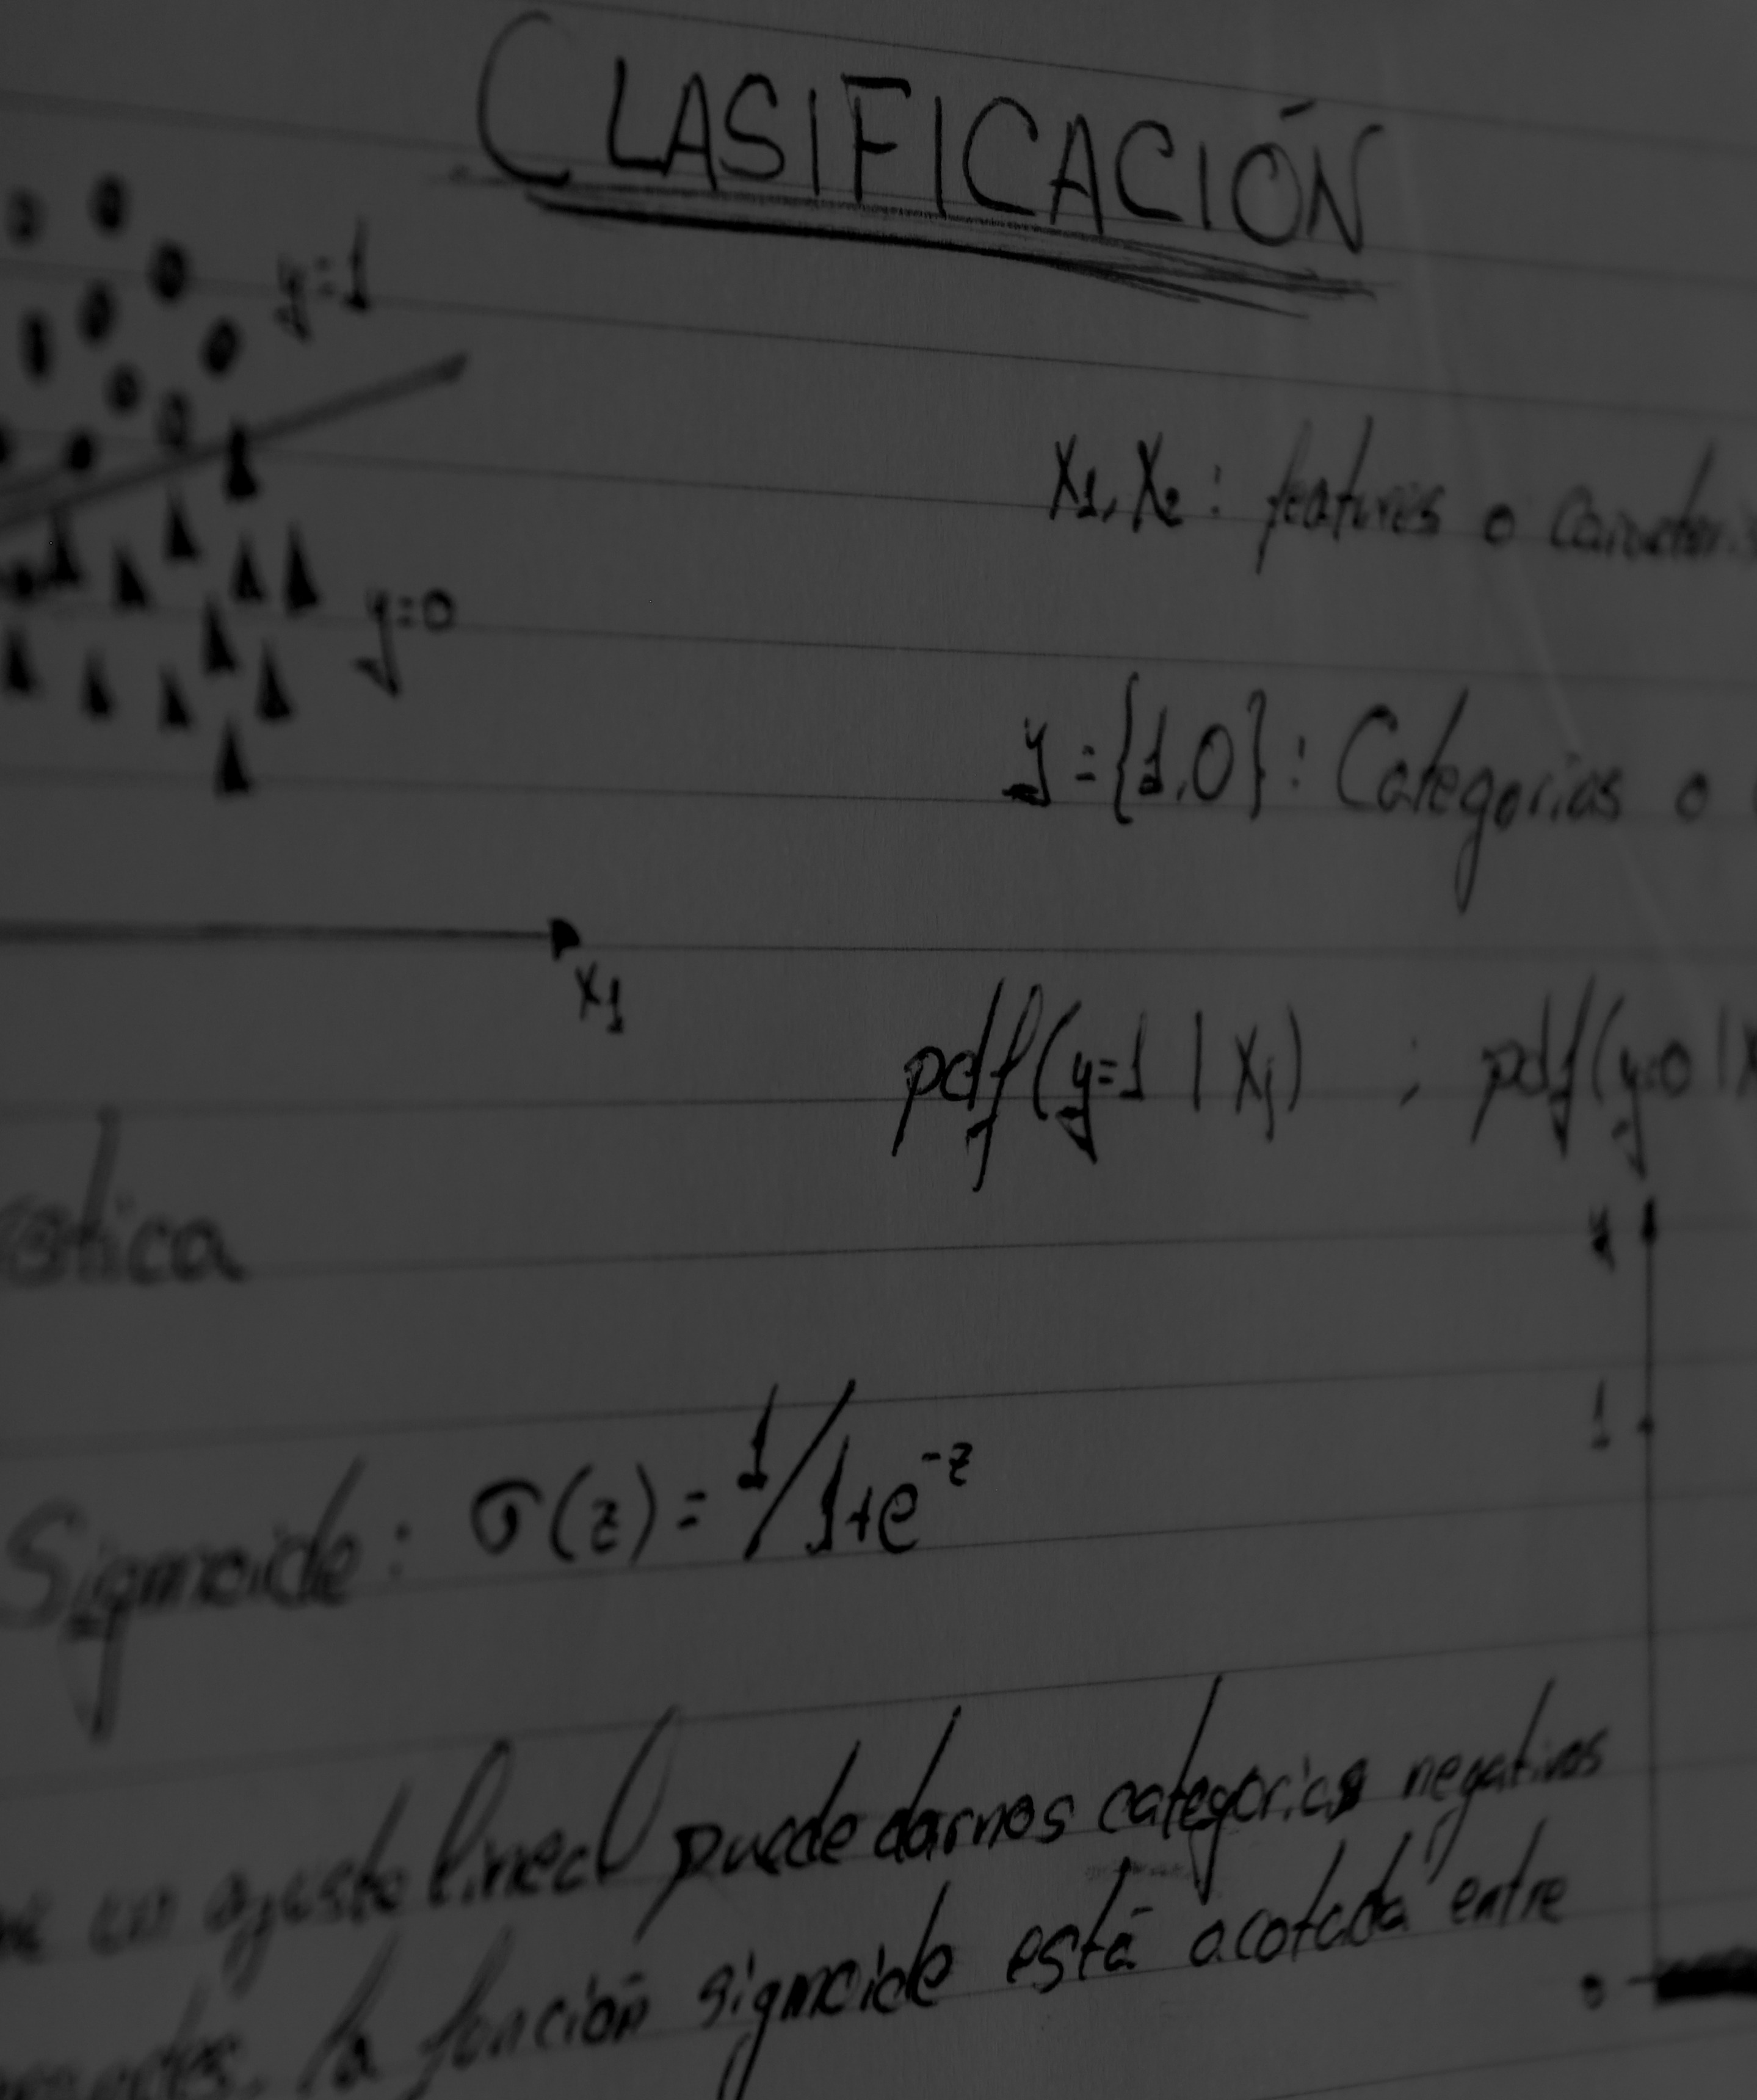 CLASIFICACIÓN
y=1
x₁, x₂ : features o
y=0
y = {1,0} : Categorias o
x₁
pdf(y=1 | xⱼ) ; pdf(y=0 |
y
1
Sigmoide : σ(z) = 1/1+e⁻ᶻ
un ajuste lineal puede darnos categorias negativas
la función sigmoide está acotada entre
0